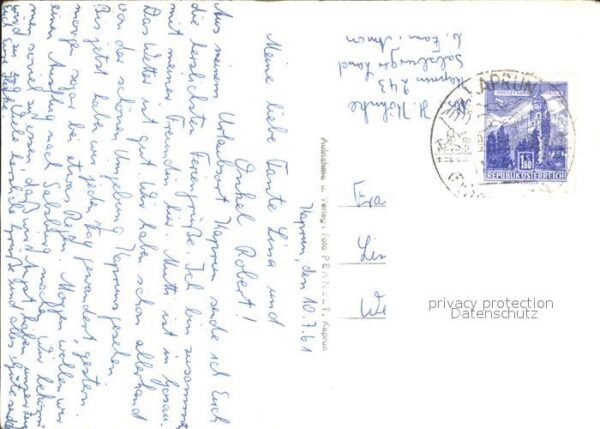 Kaprun, den 10.7.61
Meine liebe Tante Lina und
Onkel Robert!
Aus meinem Urlaubsort Kaprun sende ich Euch
die herzlichsten Feriengrüße. Ich bin zusammen
mit meinen Freunden hier. Mutti ist in Gosau.
Das Wetter ist gut. Wir haben schon allerhand
von der schönen Umgebung Kapruns gesehen.
Bis jetzt haben wir jeden Tag gewandert, gestern
sogar bei etwas Regen. Morgen wollen wir
einen Ausflug nach Salzburg machen. Wir
Viele herzliche Grüße und alles Gute
H.
Kaprun 243
Salzburger Land
b. Fam.
Aufnahme u. Verlag: Foto
Kaprun
Fra
Lin
We
KAPRUN
1.80
REPUBLIK ÖSTERREICH
privacy protection
Datenschutz